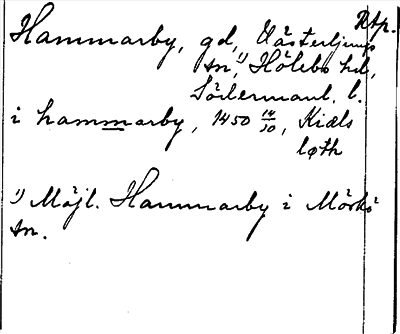 Rtp.
Hammarby, gd, Västerljungs
sn,¹⁾ Hölebo hd,
Södermanl. l.
i hammarby, 1450 14/10, Kiæls
løth
¹⁾ Möjl. Hammarby i Mörkö
sn.